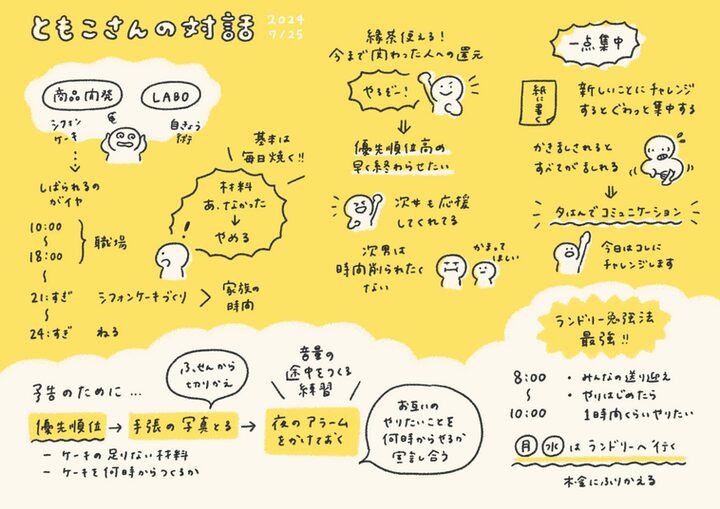 ともこさんの対話
2024
7/25
商品開発
LABO
シフォン
ケーキ
しばられるの
がイヤ
10:00
〜
18:00
職場
〜
21:すぎ シフォンケーキづくり
家族の
時間
〜
24:すぎ ねる
基本は
毎日焼く!!
材料
あ、なかった
↓
やめる
!
縁茶使える!
今まで関わった人への還元
やるぞー!
優先順位高の
早く終わらせたい
次女も応援
してくれてる
次男は
時間削られたく
ない
かまって
ほしい
一点集中
紙に書く
新しいことにチャレンジ
するとぐわっと集中する
かきまわされると
すべてがまわれる
夕はんでコミュニケーション
今日はコレに
チャレンジします
予告のために…
優先順位 → 手張の写真とる → 夜のアラーム
をかけておく
ー ケーキの足りない材料
ー ケーキを何時からつくるか
ふせんから
切りかえ
音量の
途中をつくる
練習
お互いの
やりたいことを
何時からやるか
宣言し合う
ランドリー勉強法
最強!!
8:00
〜
10:00
・みんなの送り迎え
・やりはじめたら
1時間くらいやりたい
月 水 はランドリーへ行く
木金にふりかえる